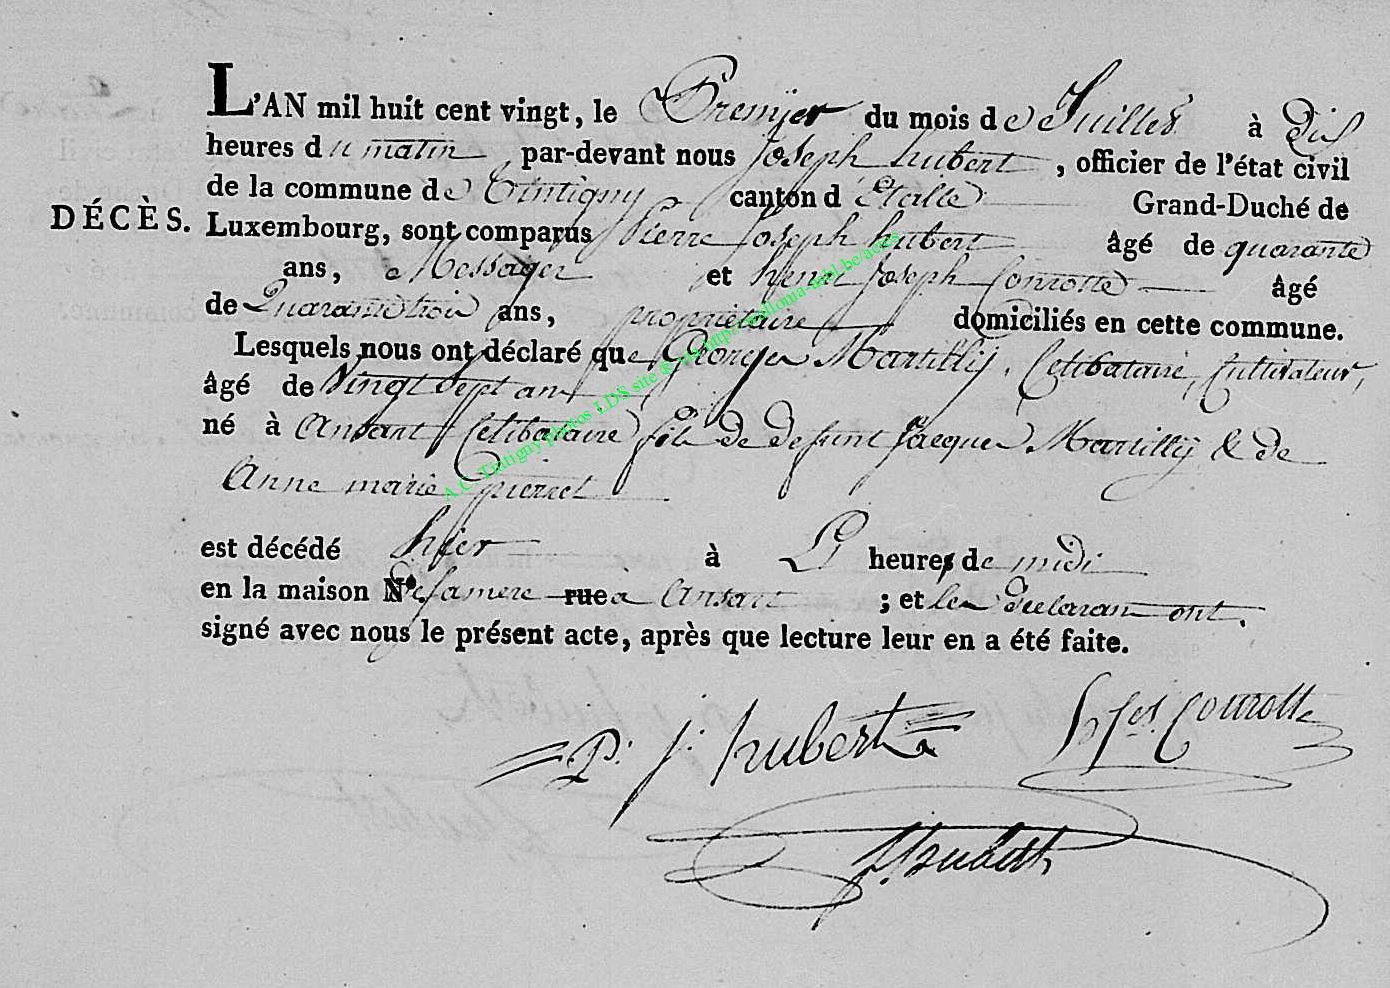 L'AN mil huit cent vingt, le Premÿer du mois de Juillet à Dix
heures du matin par-devant nous Joseph hubert, officier de l'état civil
de la commune de Tintigny canton d'Etalle Grand-Duché de
DÉCÈS.
Luxembourg, sont comparus Pierre Joseph hubert âgé de quarante
ans, Messager et henri Joseph Conrotte âgé
de Quarante trois ans, propriétaire domiciliés en cette commune.
Lesquels nous ont déclaré que Georges Martillÿ, Celibataire, Cultivateur,
âgé de Vingt Sept ans
né à Ansart Celibataire fils de defunt Jacques Martillÿ & de
Anne marie pierret
est décédé hier à heures de midi
en la maison No. de sa mere rue a Ansart ; et les Declarans ont
signé avec nous le présent acte, après que lecture leur en a été faite.
P. j. hubert
h Jos. Conrotte
J. hubert
A.C. Tintigny photos LDS site & via http://wallonia-mhl.be/actes